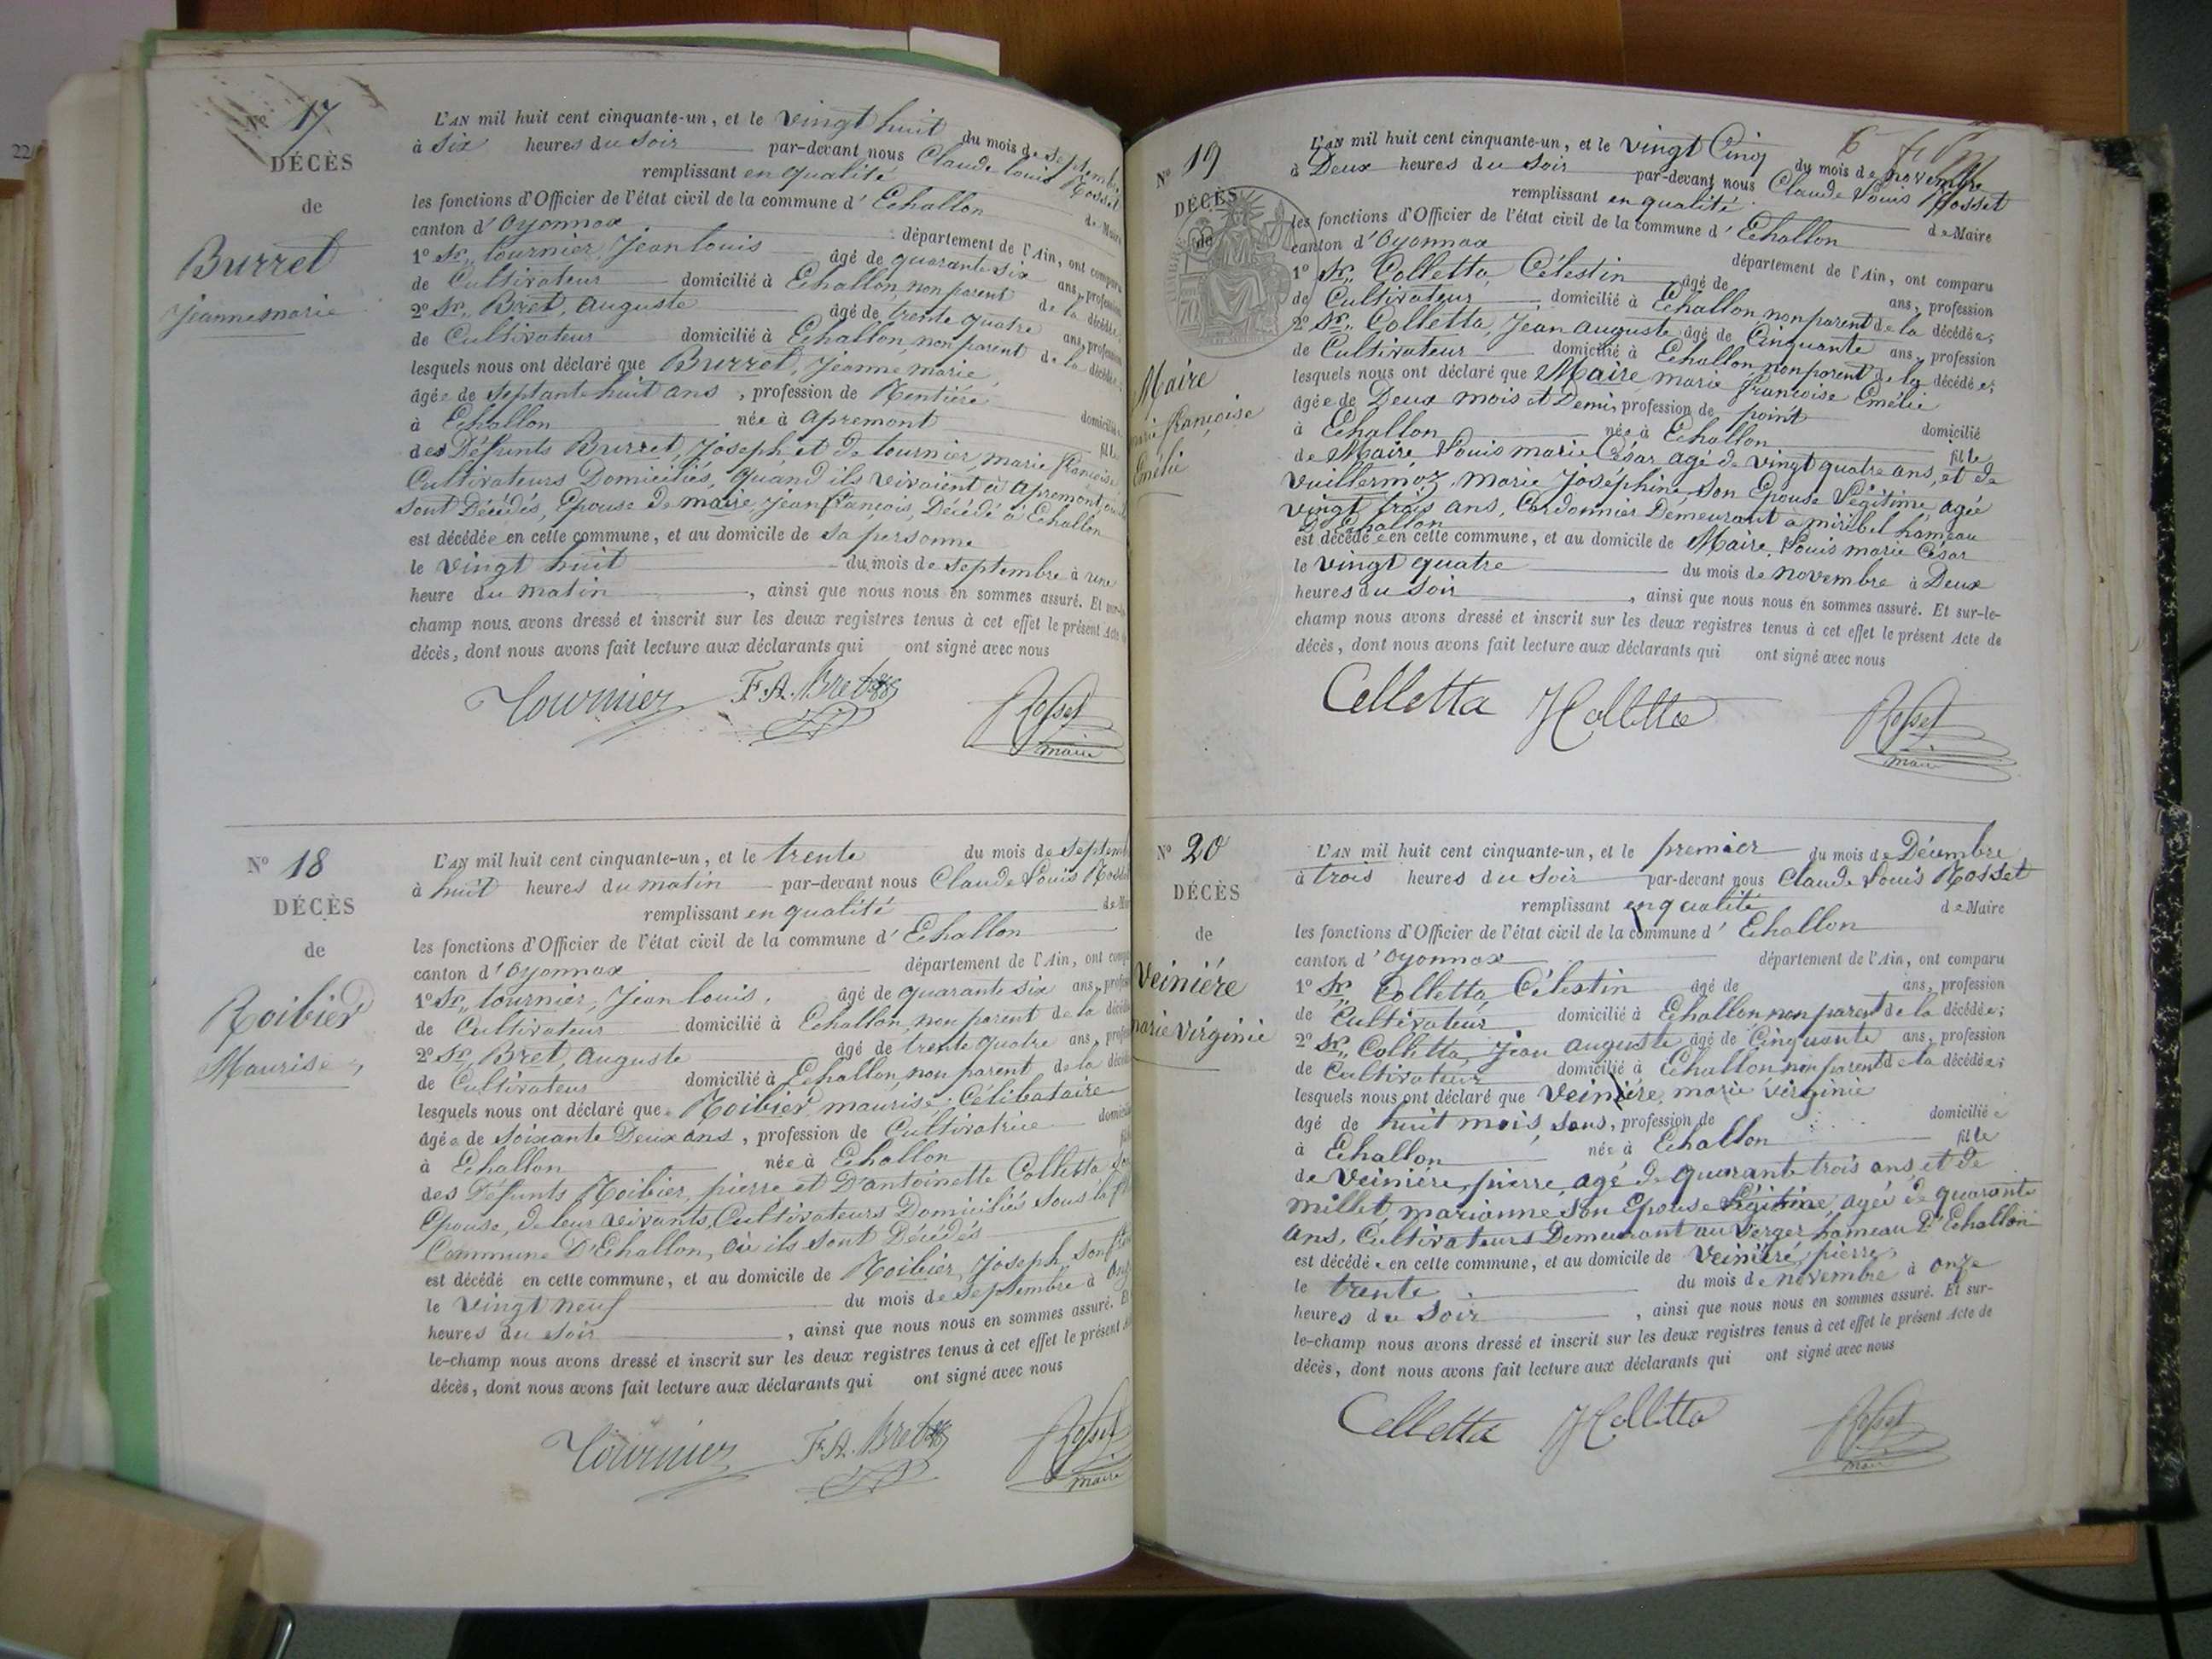 22
17
DÉCÈS
de
Burret
Jeanne marie
L'AN mil huit cent cinquante-un, et le vingt huit du mois de septembre
à six heures du soir par-devant nous Claude louis Rosset
remplissant en qualité de Maire
les fonctions d'Officier de l'état civil de la commune d' Echallon
canton d'Oyonnax département de l'Ain, ont comparu
1° Sr. tournier, Jean louis âgé de quarante six ans, profession
de Cultivateur domicilié à Echallon, non parent de la décédée;
2° Sr. Bret, auguste âgé de trente quatre ans, profession
de Cultivateur domicilié à Echallon, non parent de la décédée;
lesquels nous ont déclaré que Burret, Jeanne marie,
âgée de septante huit ans, profession de Rentière domiciliée
à Echallon née à apremont fille
des Défunts Burret, Joseph et de tournier, marie françoise
Cultivateurs Domiciliés, Quand ils vivaient à apremont, où ils
sont Décédés, Epouse de maire Jean françois, Décédé à Echallon
est décédée en cette commune, et au domicile de sa personne
le vingt huit du mois de septembre à une
heure du matin, ainsi que nous nous en sommes assuré. Et sur-le-
champ nous avons dressé et inscrit sur les deux registres tenus à cet effet le présent Acte de
décès, dont nous avons fait lecture aux déclarants qui ont signé avec nous
Tournier F.A. Bret Rosset
maire
N° 18
DÉCÈS
de
Roibier
Maurise
L'AN mil huit cent cinquante-un, et le trente du mois de septemb
à huit heures du matin par-devant nous Claude Louis Rosset
remplissant en qualité de Maire
les fonctions d'Officier de l'état civil de la commune d' Echallon
canton d'Oyonnax département de l'Ain, ont comparu
1° Sr. tournier, Jean louis, âgé de quarante six ans, profession
de Cultivateur domicilié à Echallon, non parent de la décédée
2° Sr. Bret, auguste âgé de trente quatre ans, profession
de Cultivateur domicilié à Echallon, non parent de la décédée
lesquels nous ont déclaré que Roibier, maurise, Célibataire
âgée de soixante Deux ans, profession de Cultivatrice domiciliée
à Echallon née à Echallon fille
des Défunts Roibier, pierre et D'antoinette Colletta son
Epouse, de leur vivants, Cultivateurs Domiciliés sous la
Commune D'Echallon, où ils sont Décédés
est décédé en cette commune, et au domicile de Roibier, Joseph, son
le vingt neuf du mois de septembre à onze
heures du soir, ainsi que nous nous en sommes assuré. Et
le-champ nous avons dressé et inscrit sur les deux registres tenus à cet effet le présent
décès, dont nous avons fait lecture aux déclarants qui ont signé avec nous
Tournier F.A. Bret Rosset
maire
N° 19
DÉCÈS
de
Maire
marie françoise
Emélie
L'AN mil huit cent cinquante-un, et le vingt Cinq du mois de novembre
à Deux heures du soir par-devant nous Claude Louis Rosset
remplissant en qualité de Maire
les fonctions d'Officier de l'état civil de la commune d' Echallon
canton d'Oyonnax département de l'Ain, ont comparu
1° Sr. Colletta, Célestin âgé de ans, profession
de Cultivateur domicilié à Echallon non parent de la décédée;
2° Sr. Colletta, Jean auguste âgé de Cinquante ans, profession
de Cultivateur domicilié à Echallon non parent de la décédée;
lesquels nous ont déclaré que Maire marie françoise Emélie
âgée de Deux mois et Demi, profession de point domicilié
à Echallon née à Echallon fille
de Maire Louis marie César agé de vingt quatre ans, et de
Vuillermoz, Marie Joséphine, son Epouse Légitime, agée
vingt trois ans, Cordonnier Demeurant à miribel hameau
D'Echallon
est décédée en cette commune, et au domicile de Maire, Louis marie César
le vingt quatre du mois de novembre à Deux
heures du soir, ainsi que nous nous en sommes assuré. Et sur-le-
champ nous avons dressé et inscrit sur les deux registres tenus à cet effet le présent Acte de
décès, dont nous avons fait lecture aux déclarants qui ont signé avec nous
Colletta JColletta Rosset
maire
N° 20
DÉCÈS
de
Veiniére
marie virginie
L'AN mil huit cent cinquante-un, et le premier du mois de Décembre
à trois heures du soir par-devant nous Claude Louis Rosset
remplissant en qualité de Maire
les fonctions d'Officier de l'état civil de la commune d' Echallon
canton d'Oyonnax département de l'Ain, ont comparu
1° Sr. Colletta, Célestin âgé de ans, profession
de Cultivateur domicilié à Echallon non parent de la décédée;
2° Sr. Colletta, Jean auguste âgé de Cinquante ans, profession
de Cultivateur domicilié à Echallon non parent de la décédée;
lesquels nous ont déclaré que Veiniére, marie virginie
âgé de huit mois, sans, profession de domiciliée
à Echallon née à Echallon fille
de Veiniére, pierre, agé de quarante trois ans et de
millet, marianne son Epouse Légitime, agée de quarante
ans, Cultivateurs Demeurant au Verger hameau D'Echallon
est décédée en cette commune, et au domicile de Veiniére, pierre,
le trente du mois de novembre à onze
heures du soir, ainsi que nous nous en sommes assuré. Et sur-
le-champ nous avons dressé et inscrit sur les deux registres tenus à cet effet le présent Acte de
décès, dont nous avons fait lecture aux déclarants qui ont signé avec nous
Colletta JColletta Rosset
maire